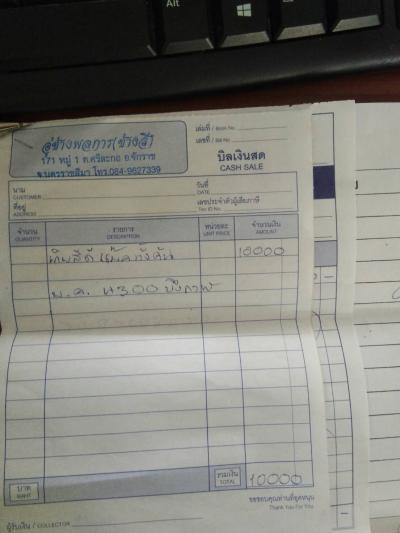 Alt
อู่ช่างพลการ(ช่างสี)
171 หมู่ 1 ต.ศรีละกอ อ.จักราช
จ.นครราชสีมา โทร.084-9627339
เล่มที่ / Book No.
เลขที่ / Bill No.
บิลเงินสด
CASH SALE
นาม
CUSTOMER
วันที่
DATE
ที่อยู่
ADDRESS
เลขประจำตัวผู้เสียภาษี
Tax ID No.
จำนวน
QUANTITY
รายการ
DESCRIPTION
หน่วยละ
UNIT PRICE
จำนวนเงิน
AMOUNT
10000
น.ค. 4300
บาท
BAHT
รวมเงิน
TOTAL
10000
ขอขอบคุณท่านที่อุดหนุน
Thank You For You
ผู้รับเงิน / COLLECTOR